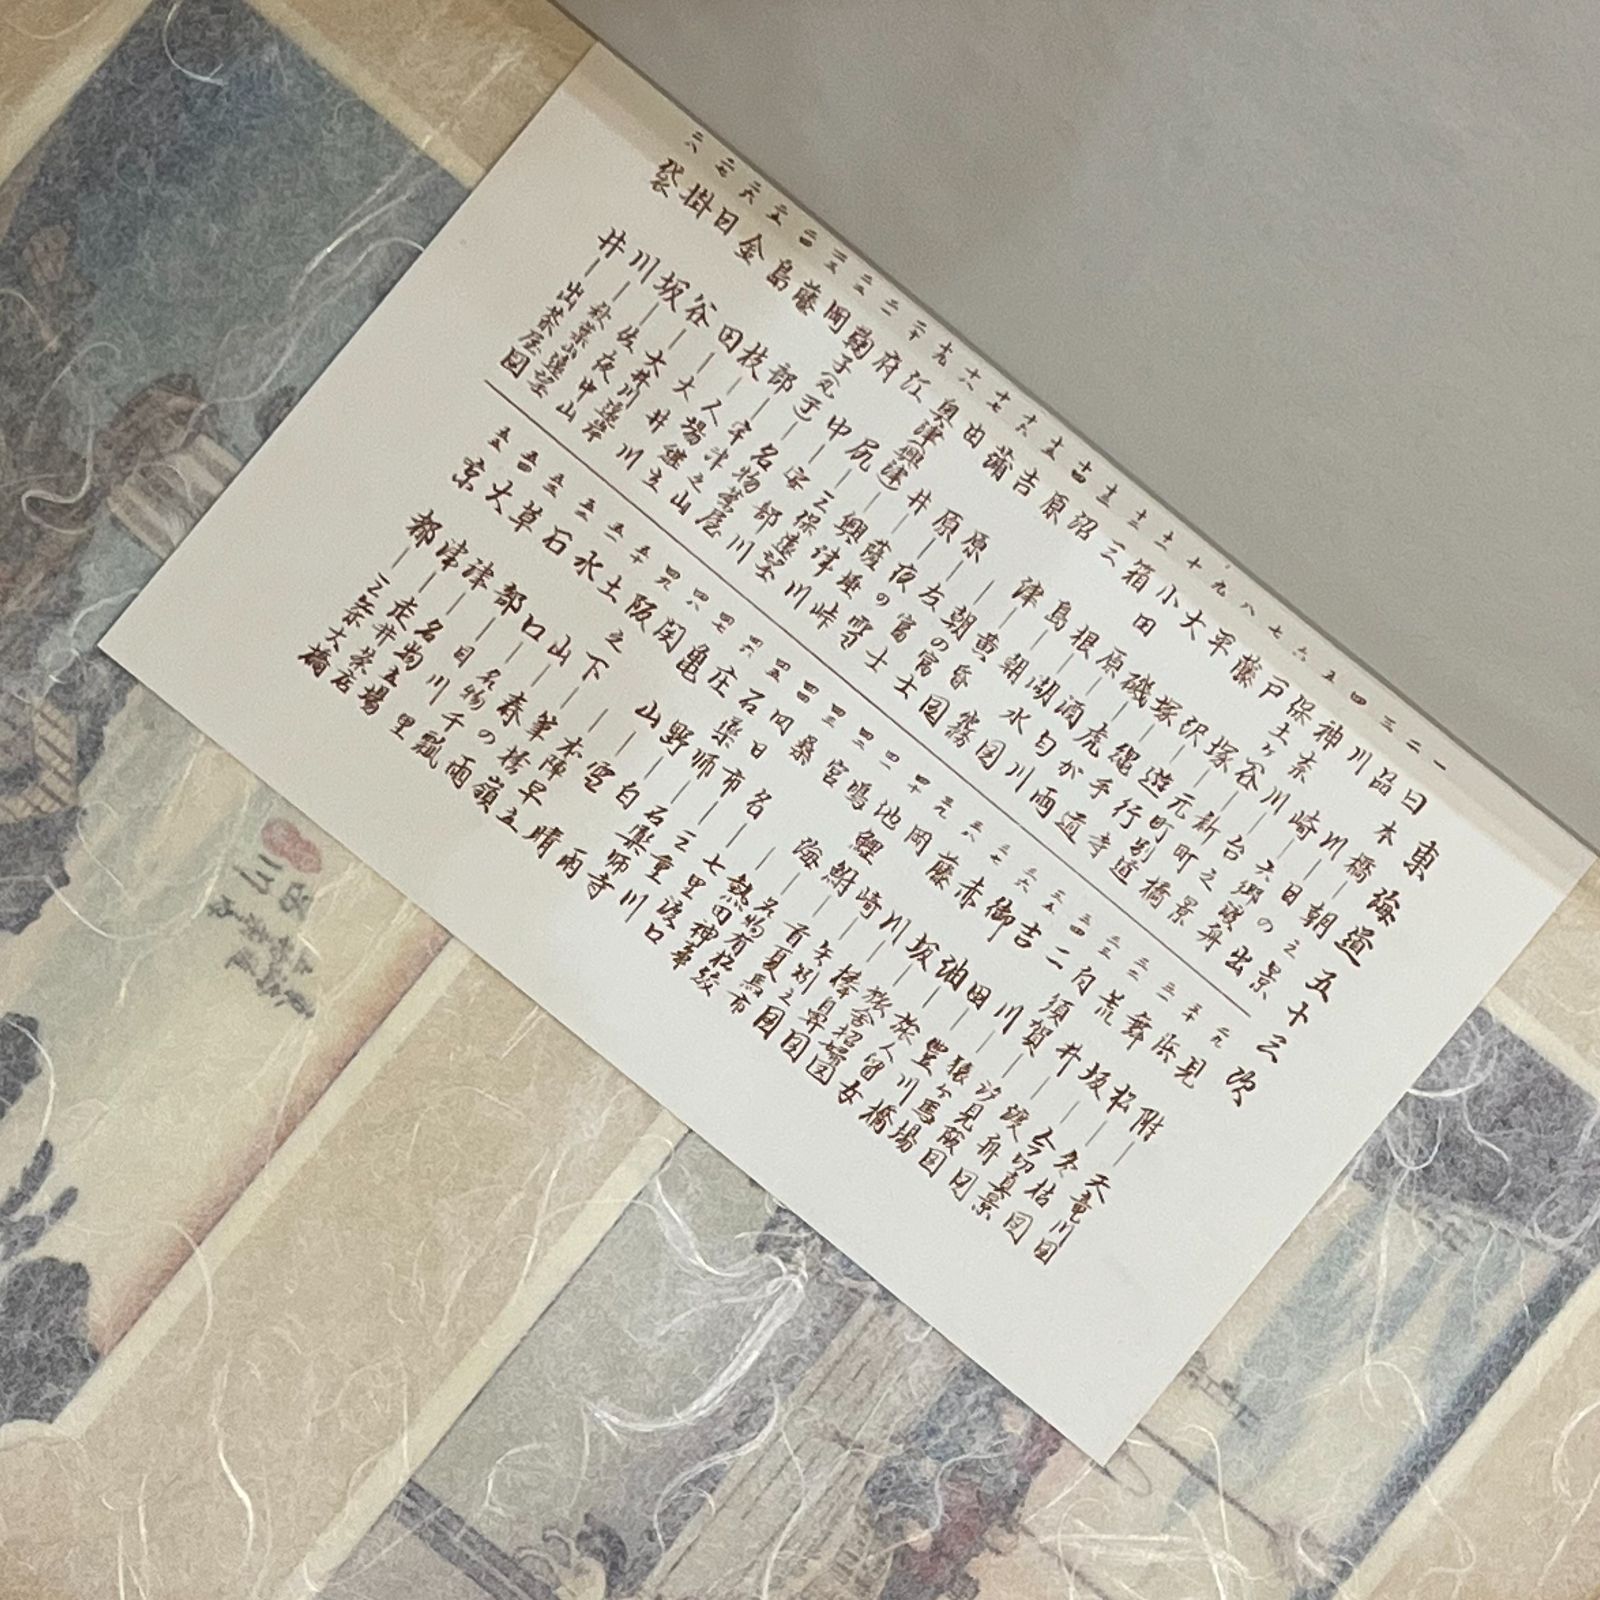 東海道五十三次
一 日本橋―朝之景
二 品川―日の出
三 川崎―六郷渡舟
四 神奈川―台之景
五 保土ヶ谷―新町橋
六 戸塚―元町別道
七 藤沢―遊行寺
八 平塚―縄手道
九 大磯―虎が雨
十 小田原―酒匂川
十一 箱根―湖水図
十二 三島―朝霧
十三 沼津―黄昏図
十四 原―朝の富士
十五 吉原―左富士
十六 蒲原―夜の雪
十七 由井―薩埵峠
十八 奥津(興津)―興津川
十九 江尻―三保遠望
二十 府中―安部川
二一 鞠子(丸子)―名物茶屋
二二 岡部―宇津之山
二三 藤枝―人場継立
二四 島田―大井川
二五 金谷―大井川遠岸
二六 日坂―佐夜中山
二七 掛川―秋葉山遠望
二八 袋井―出茶屋図
二九 見附―天竜川図
三十 浜松―冬枯図
三一 舞坂―今切真景
三二 荒井―渡舟図
三三 白須賀―汐見阪図
三四 二川―猿ヶ馬場
三五 吉田―豊川橋
三六 御油―旅人留女
三七 赤坂―旅舎招婦図
三八 藤川―棒鼻図
三九 岡崎―矢矧之図
四十 池鯉鮒―首夏馬市
四一 鳴海―名物有松絞
四二 宮―熱田神事
四三 桑名―七里渡口
四四 四日市―三重川
四五 石薬師―石薬師寺
四六 庄野―白雨
四七 亀山―雪晴
四八 関―本陣早立
四九 阪之下―筆捨嶺
五十 土山―春の雨
五一 水口―名物千瓢
五二 石部―目川里
五三 草津―名物立場
五四 大津―走井茶店
五五 京都―三条大橋